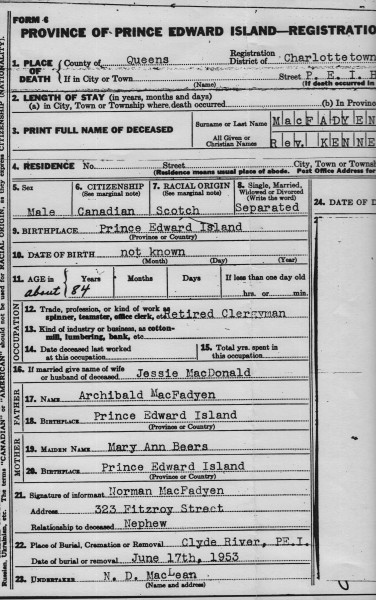 FORM 4
PROVINCE OF PRINCE EDWARD ISLAND—REGISTRATIO
1. PLACE OF DEATH { County of Queens Registration District of Charlottetown
If in City or Town Street P. E. I. H
(Name) (If death occurred in
2. LENGTH OF STAY (in years, months and days)
(a) in City, Town or Township where death occurred (b) In Provinc
3. PRINT FULL NAME OF DECEASED Surname or Last Name MacFADYEN
All Given or Christian Names Rev. KENNE
4. RESIDENCE No. Street City, Town or Townshi
(Residence means usual place of abode. Post Office Address for
5. Sex 6. CITIZENSHIP (See marginal note) 7. RACIAL ORIGIN (See marginal note) 8. Single, Married, Widowed or Divorced (Write the word)
Male Canadian Scotch Separated
24. DATE OF D
9. BIRTHPLACE Prince Edward Island
(Province or Country)
10. DATE OF BIRTH not known
(Month) (Day) (Year)
11. AGE in Years Months Days If less than one day old
about 84 hrs. or min.
OCCUPATION
12. Trade, profession, or kind of work as spinner, teamster, office clerk, etc. Retired Clergyman
13. Kind of industry or business, as cotton-mill, lumbering, bank, etc.
14. Date deceased last worked at this occupation 15. Total yrs. spent in this occupation
16. If married give name of wife or husband of deceased Jessie MacDonald
FATHER
17. NAME Archibald MacFadyen
18. BIRTHPLACE Prince Edward Island
(Province or Country)
MOTHER
19. MAIDEN NAME Mary Ann Beers
20. BIRTHPLACE Prince Edward Island
(Province or Country)
21. Signature of informant Norman MacFadyen
Address 323 Fitzroy Street
Relationship to deceased Nephew
22. Place of Burial, Cremation or Removal Clyde River, PE.I.
Date of burial or removal June 17th, 1953
23. UNDERTAKER N. D. MacLean
(Name and address)
Russian, Ukrainian, etc. The terms "CANADIAN" or "AMERICAN" should not be used for RACIAL ORIGIN, as they express CITIZENSHIP (NATIONALITY).